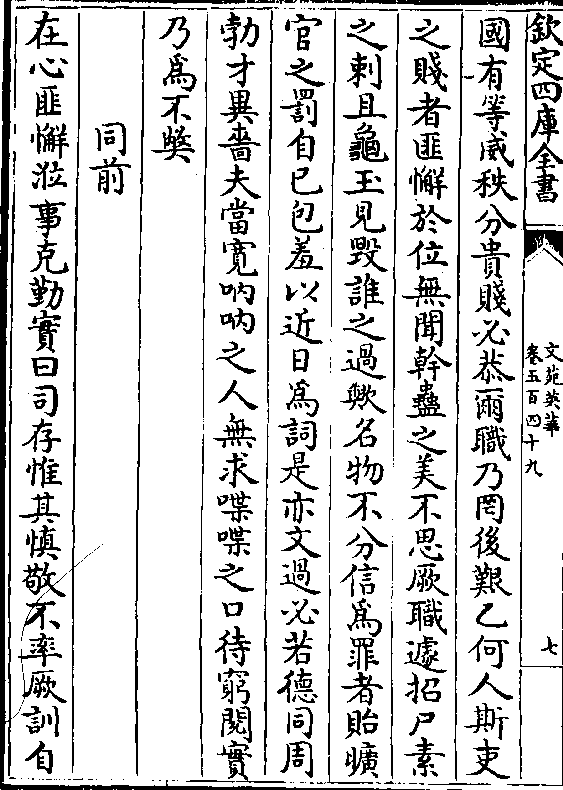 欽定四庫全書
文苑英華
卷五百四十九
七
國有等威秩分貴賤必恭爾職乃罔後艱乙何人斯吏
之賤者匪懈於位無聞幹蠱之美不思厥職遽招尸素
之刺且龜玉見毀誰之過歟名物不分信為罪者貽曠
官之罰自已包羞以近日為詞是亦文過必若德同周
勃才異嗇夫當寛呐呐之人無求喋喋之口待窮閱實
乃為不獘
同前
在心匪懈涖事克勤實曰司存惟其慎敬不率厥訓自